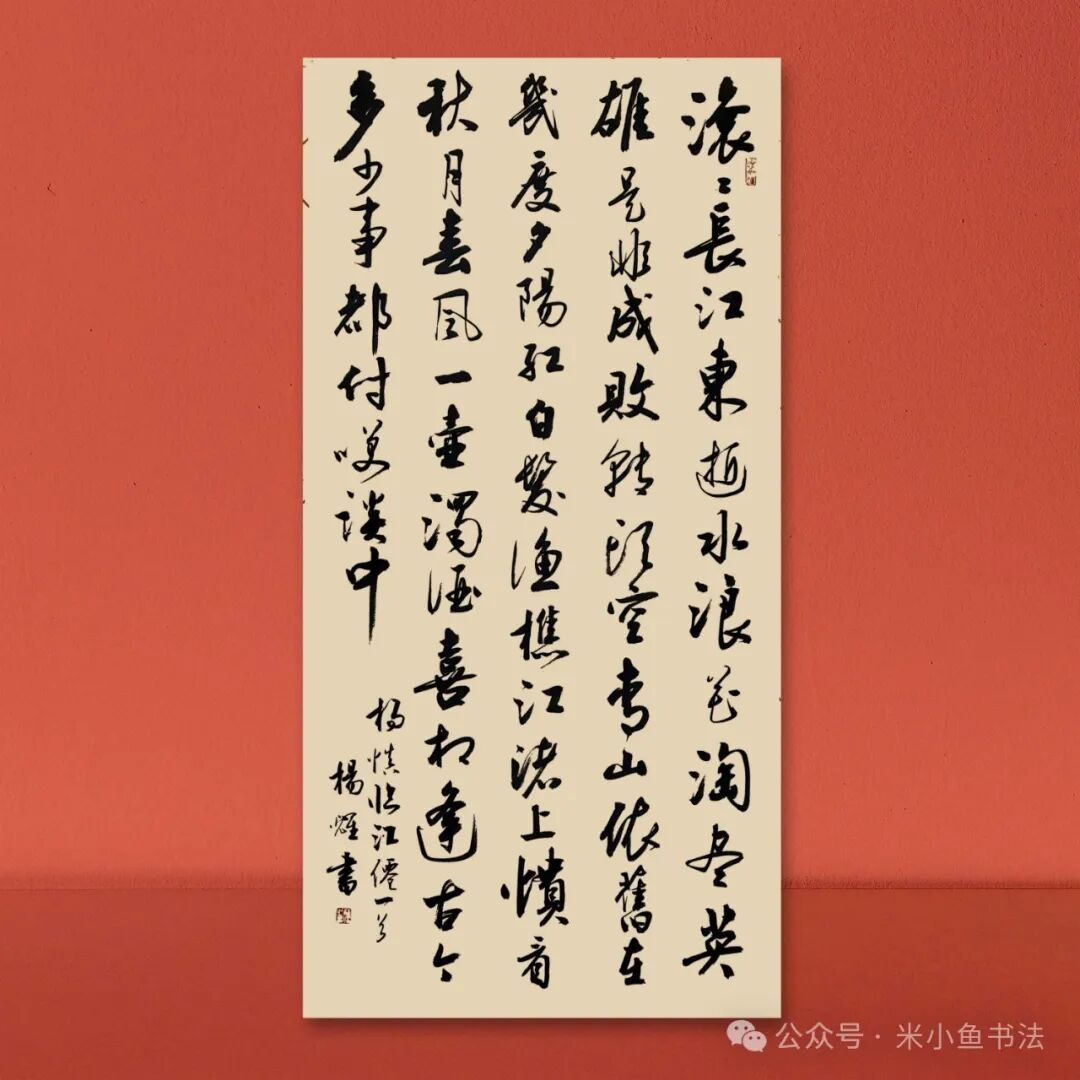 滚〻長江東逝水浪花淘尽英
雄是非成敗轉頭空青山依舊在
幾度夕陽紅白髮漁樵江渚上慣看
秋月春風一壺濁酒喜相逢古今
多少事都付笑談中
楊慎臨江僊一首
楊耀書
公众号 · 米小鱼书法